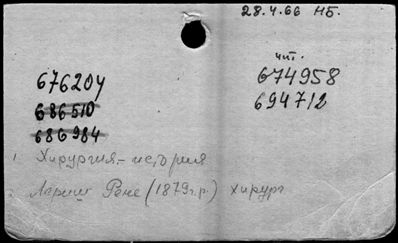 28.4.66 НБ.
чит.
676204
674958
686510
694712
686984
1. Хирургия - история
2. Лериш Рене (1879 г.р.) хирург